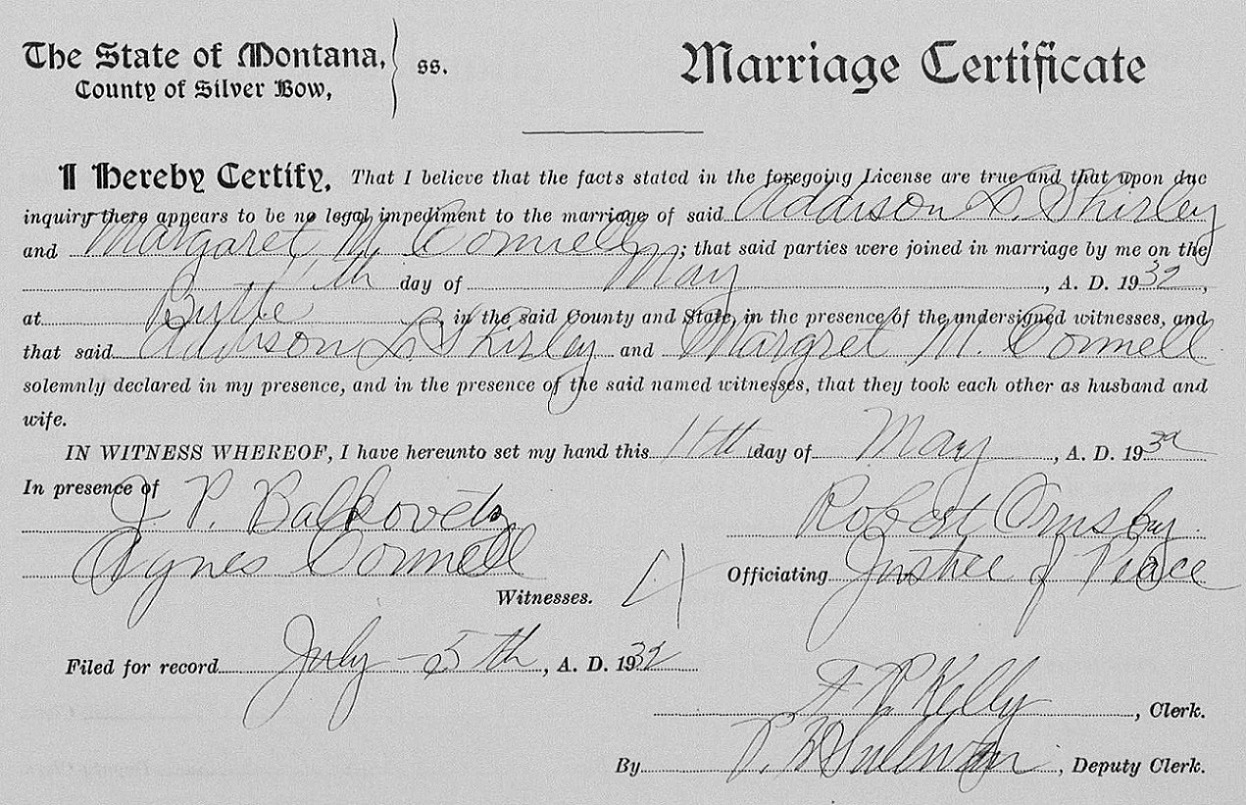 The State of Montana, ss. Marriage Certificate
County of Silver Bow,
I Hereby Certify, That I believe that the facts stated in the foregoing License are true and that upon due
inquiry there appears to be no legal impediment to the marriage of said Addison L. Shirley
and Margaret M. Connelly; that said parties were joined in marriage by me on the
11th day of May, A. D. 1932,
at Butte, in the said County and State, in the presence of the undersigned witnesses, and
that said Addison L. Shirley and Margret M. Connell
solemnly declared in my presence, and in the presence of the said named witnesses, that they took each other as husband and
wife.
IN WITNESS WHEREOF, I have hereunto set my hand this 11th day of May, A. D. 1932
In presence of
J. P. Balkovetz Robert Ormsby
Agnes Connell Officiating Justice of Peace
Witnesses.
Filed for record July - 5th, A. D. 1932
Kelly, Clerk.
By Sullivan, Deputy Clerk.